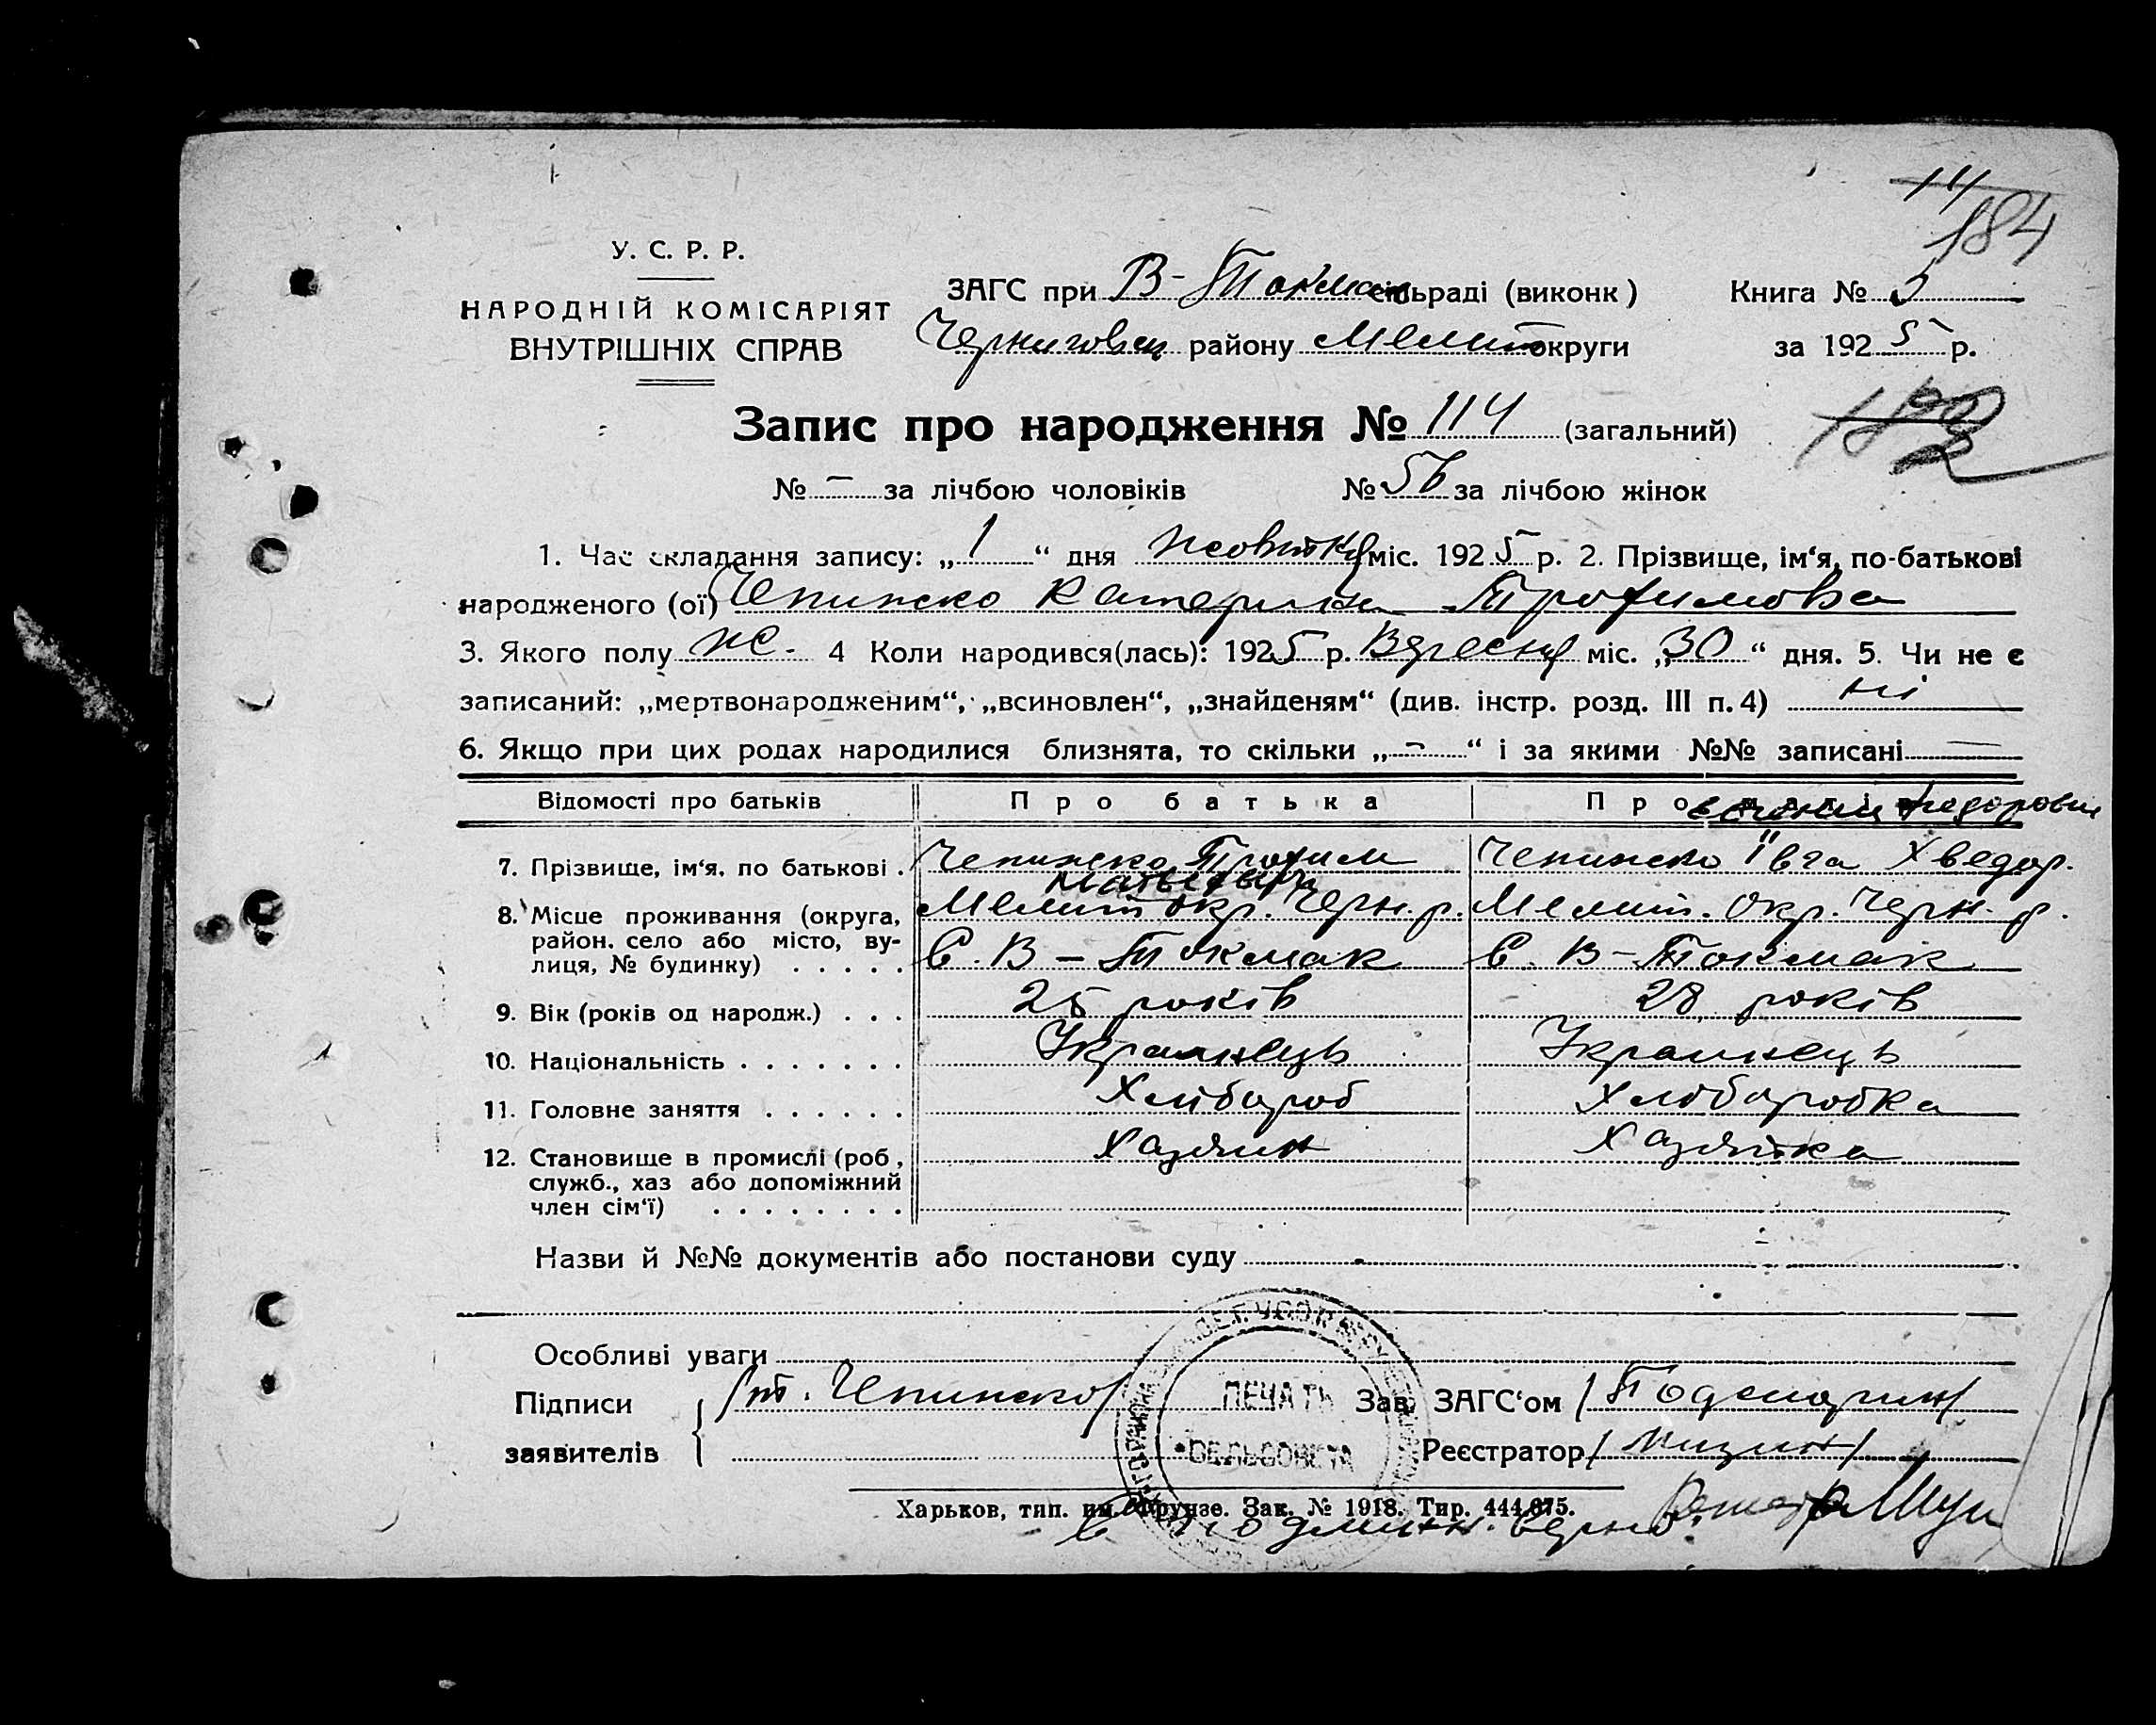 111
184
У. С. Р. Р.
НАРОДНІЙ КОМІСАРІЯТ
ВНУТРІШНІХ СПРАВ
ЗАГС при В-Токмак сільраді (виконк)
Книга №
Черниговськ району Мелит округи
за 1925 р.
Запис про народження № 114 (загальний)
№ – за лічбою чоловіків № 56 за лічбою жінок
1. Час складання запису: „1“ дня жовтня міс. 1925 р. 2. Прізвище, ім‘я, по-батькові
народженого (ої) Чепижко Катерина Трофимова
3. Якого полу ж. 4 Коли народився(лась): 1925 р. Вересня міс. „30“ дня. 5. Чи не є
записаний: „мертвонародженим“, „всиновлен“, „знайденям“ (див. інстр. розд. III п. 4) ні
6. Якщо при цих родах народилися близнята, то скільки „–“ і за якими №№ записані —
Відомості про батьків Про батька Про матір
Федоровна
7. Прізвище, ім‘я, по батькові . Чепижко Трофим Чепижко Ївга Хведор.
Матвеевич
8. Місце проживання (округа, Мелит окр. Черн. р. Мелит. Окр. Черн. р.
район, село або місто, ву-
лиця, № будинку) . . . . . С. В-Токмак С. В-Токмак
9. Вік (років од народж.) . . . 25 років 28 років
10. Національність . . . . . . . Украинець Украинець
11. Головне заняття . . . . . . Хлібороб Хліборобка
12. Становище в промислі (роб, Хазяин Хазяйка
служб., хаз або допоміжний
член сім‘ї) . . . . . . . .
Назви й №№ документів або постанови суду
Особливі уваги
Підписи /т. Чепижко/ Зав. ЗАГС‘ом
заявителів Реєстратор
ПЕЧАТЬ
СЕЛЬСОВЕТА
Харьков, тип. им. Фрунзе. Зак. № 1918. Тир. 444.875.
С подлин. верно: